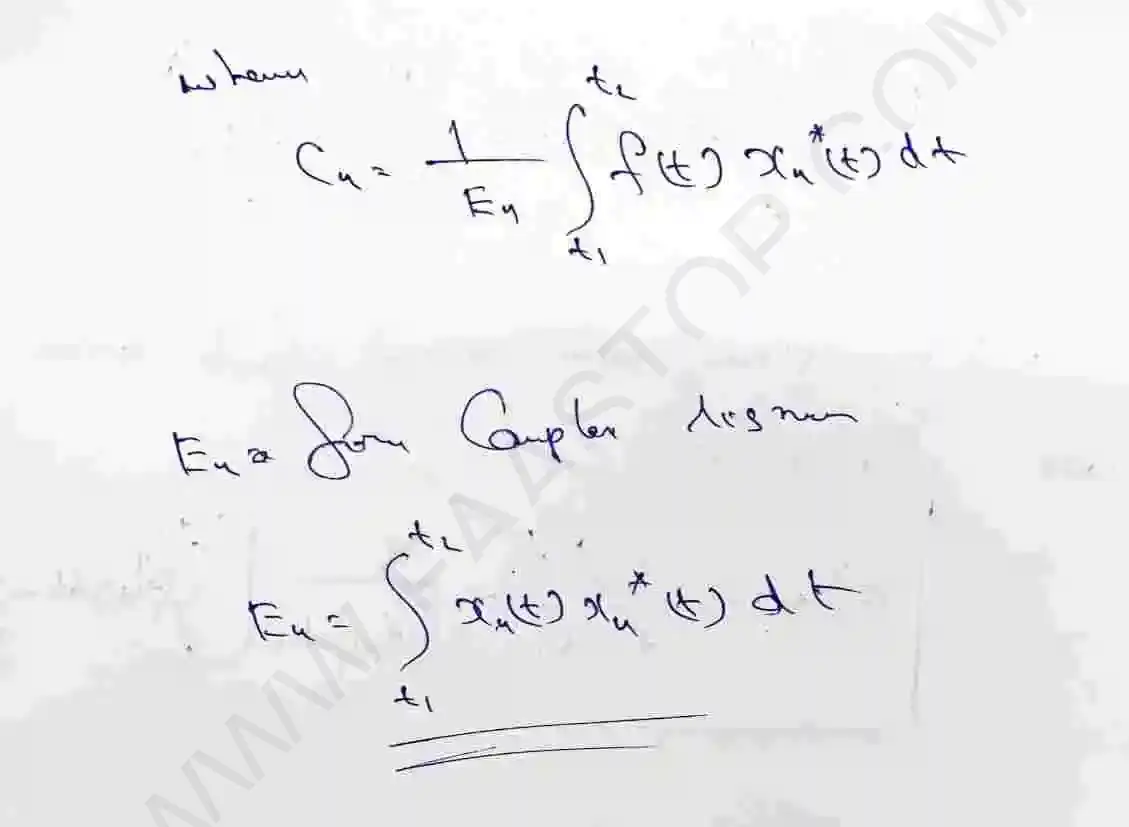 where
Cn = 1/En ∫_{t1}^{t2} f(t) xn*(t) dt
En = for Complex signal
En = ∫_{t1}^{t2} xn(t) xn*(t) dt
WWW.FAASTOP.COM